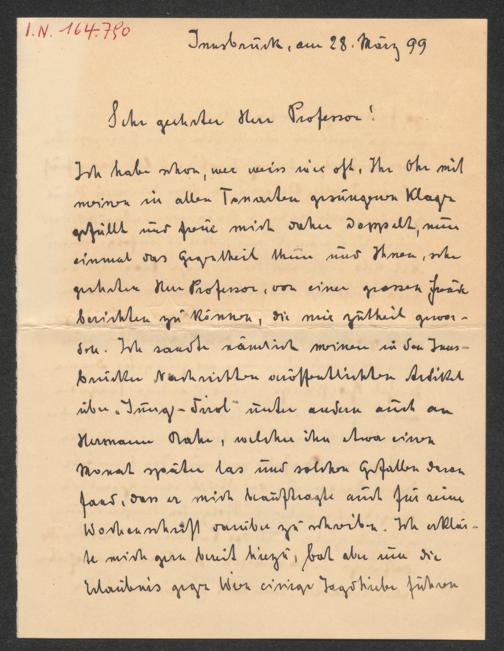 I.N. 164.790
Innsbruck, am 28. März 99
Sehr geehrter Herr Professor!
Ich habe schon, wer weiss wie oft, Ihr Ohr mit
meinen in allen Tonarten gesungenen Klagen
gefüllt und freue mich daher doppelt, nun
einmal das Gegentheil thun und Ihnen, sehr
geehrter Herr Professor, von einer grossen Freude
berichten zu können, die mir zutheil gewor-
den. Ich sandte nämlich meinen in den Inns-
brucker Nachrichten veröffentlichten Artikel
über „Jung-Tirol" unter andern auch an
Hermann Bahr, welcher ihn etwa einen
Monat später las und solchen Gefallen daran
fand, dass er mich beauftragte auch für seine
Wochenschrift darüber zu schreiben. Ich erklär-
te mich gern bereit hiezu, bat aber um die
Erlaubnis gegen Wien einige Jagdhiebe führen